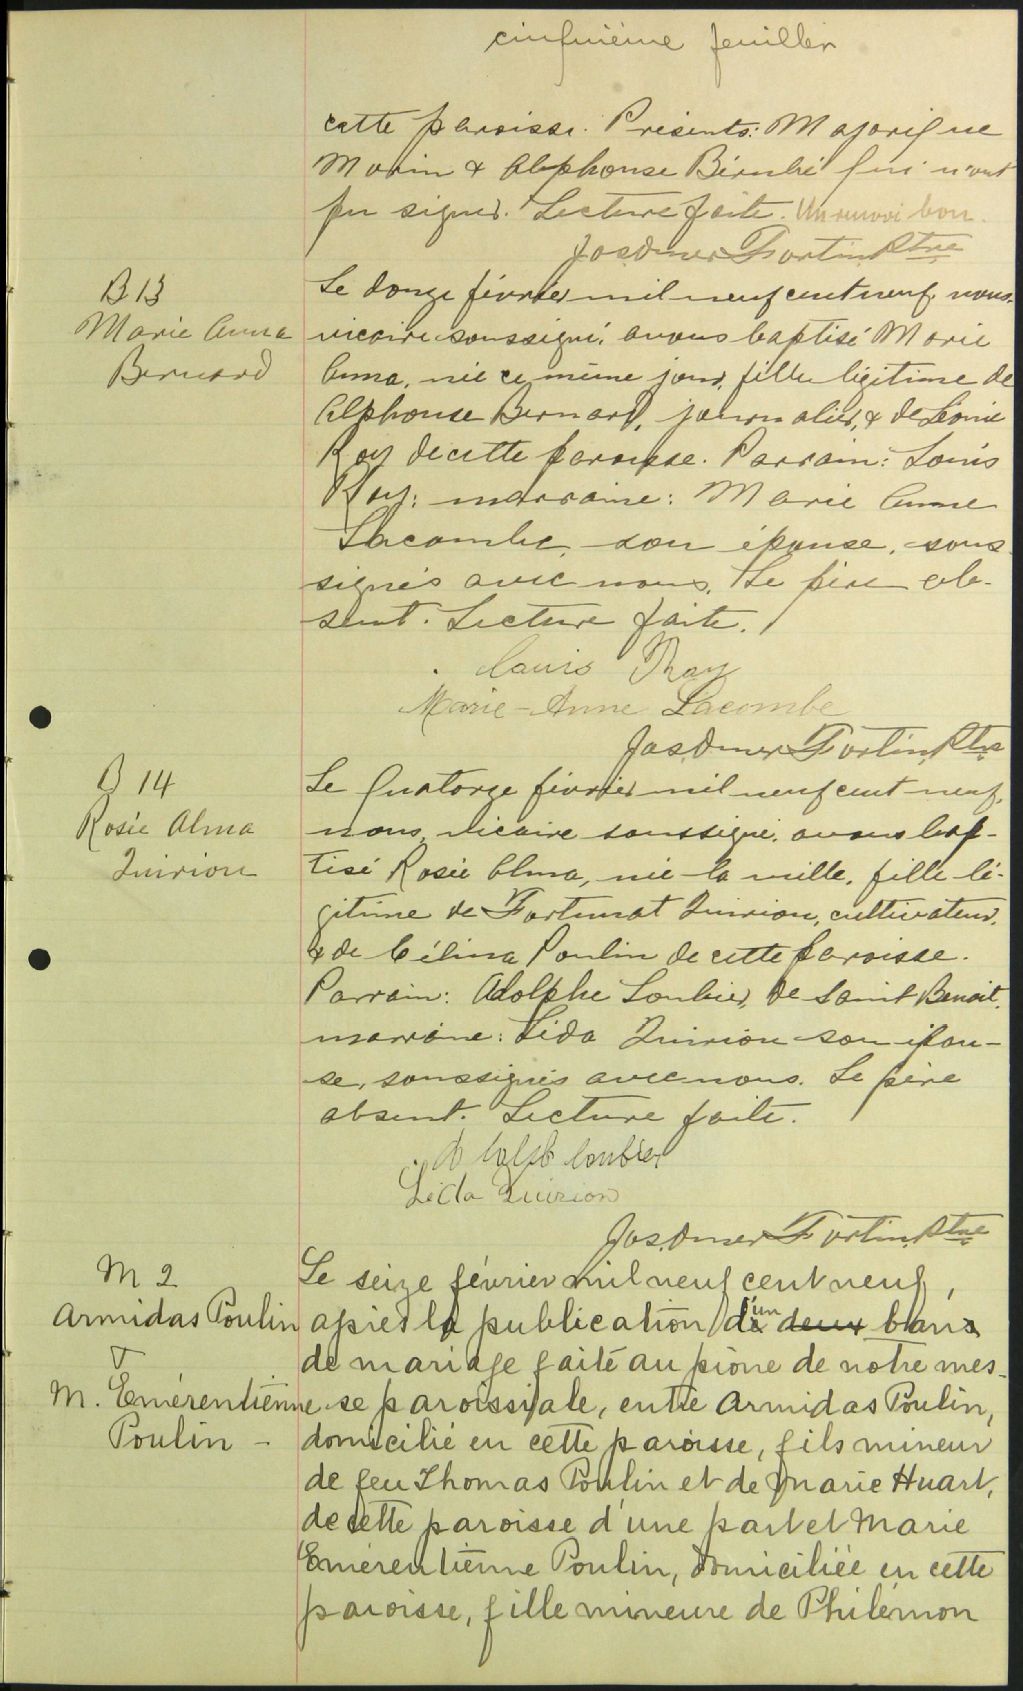 cinquième feuillet
cette paroisse. Présents: Majorique
Morin & Alphonse Bérubé qui n'ont
pu signer. Lecture faite. Un renvoi bon.
Jos. Omer Fortin Ptre
B 13
Marie Anna
Bernard
Le douze février mil neuf cent neuf, nous,
vicaire soussigné, avons baptisé Marie
Anna, née ce même jour, fille légitime de
Alphonse Bernard, journalier, & de Léonie
Roy de cette paroisse. Parrain: Louis
Roy; marraine: Marie Anne
Lacombe, son épouse, sous-
signés avec nous. Le père ab-
sent. Lecture faite.
Louis Roy
Marie-Anne Lacombe
Jos. Omer Fortin, Ptre
B 14
Rosée Alma
Quirion
Le Quatorze février mil neuf cent neuf,
nous, vicaire soussigné, avons bap-
tisé Rosée Alma, née la veille, fille lé-
gitime de Fortunat Quirion, cultivateur,
& de Célina Poulin de cette paroisse.
Parrain: Adolphe Loubier, de Saint Benoit,
marraine: Lida Quirion son épou-
se, soussignés avec nous. Le père
absent. Lecture faite.
Adolph Loubier
Lida Quirion
Jos. Omer Fortin, Ptre
M 2
Armidas Poulin
&
M. Emérentienne
Poulin -
Le seize février mil neuf cent neuf,
après la publication d'un deux bans
de mariage faite au prône de notre mes-
se paroissiale, entre Armidas Poulin,
domicilié en cette paroisse, fils mineur
de feu Thomas Poulin et de Marie Huart,
de cette paroisse d'une part et Marie
Emérentienne Poulin, domiciliée en cette
paroisse, fille mineure de Philémon